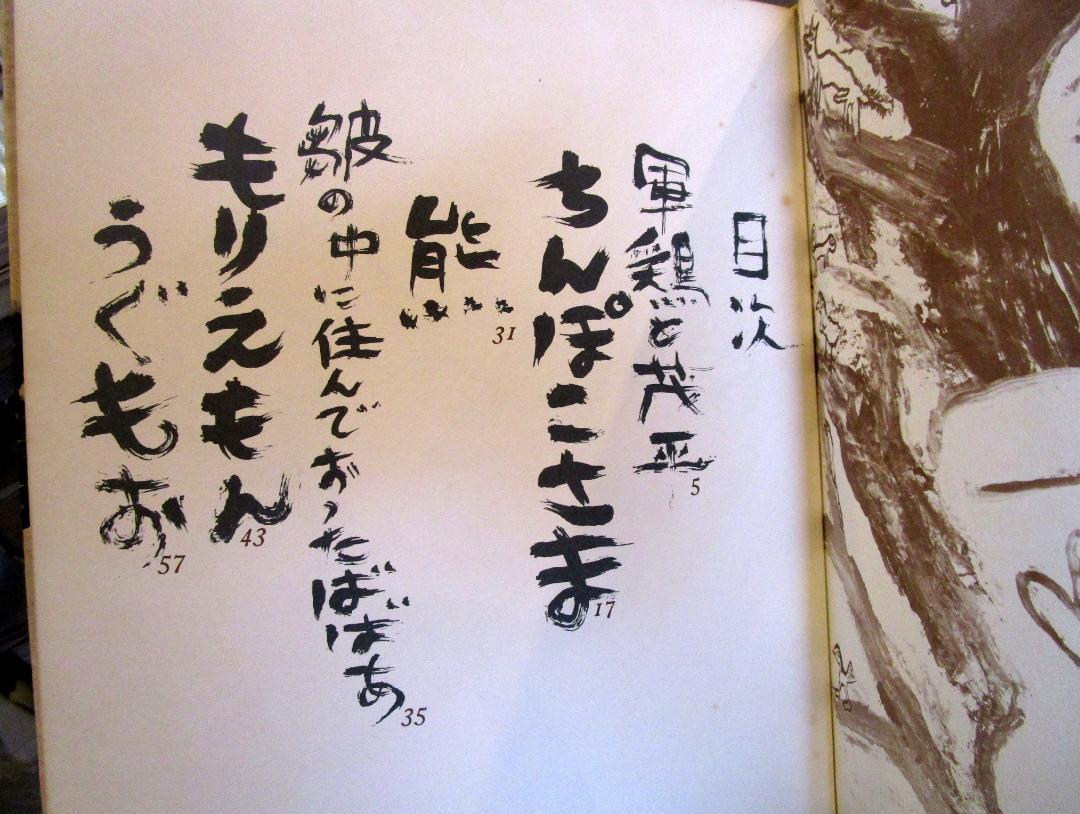 目次
軍鶏と茂平 5
ちんぽこさま 17
熊 31
皺の中に住んでおったばばあ 35
もりえもん 43
うぐもお 57